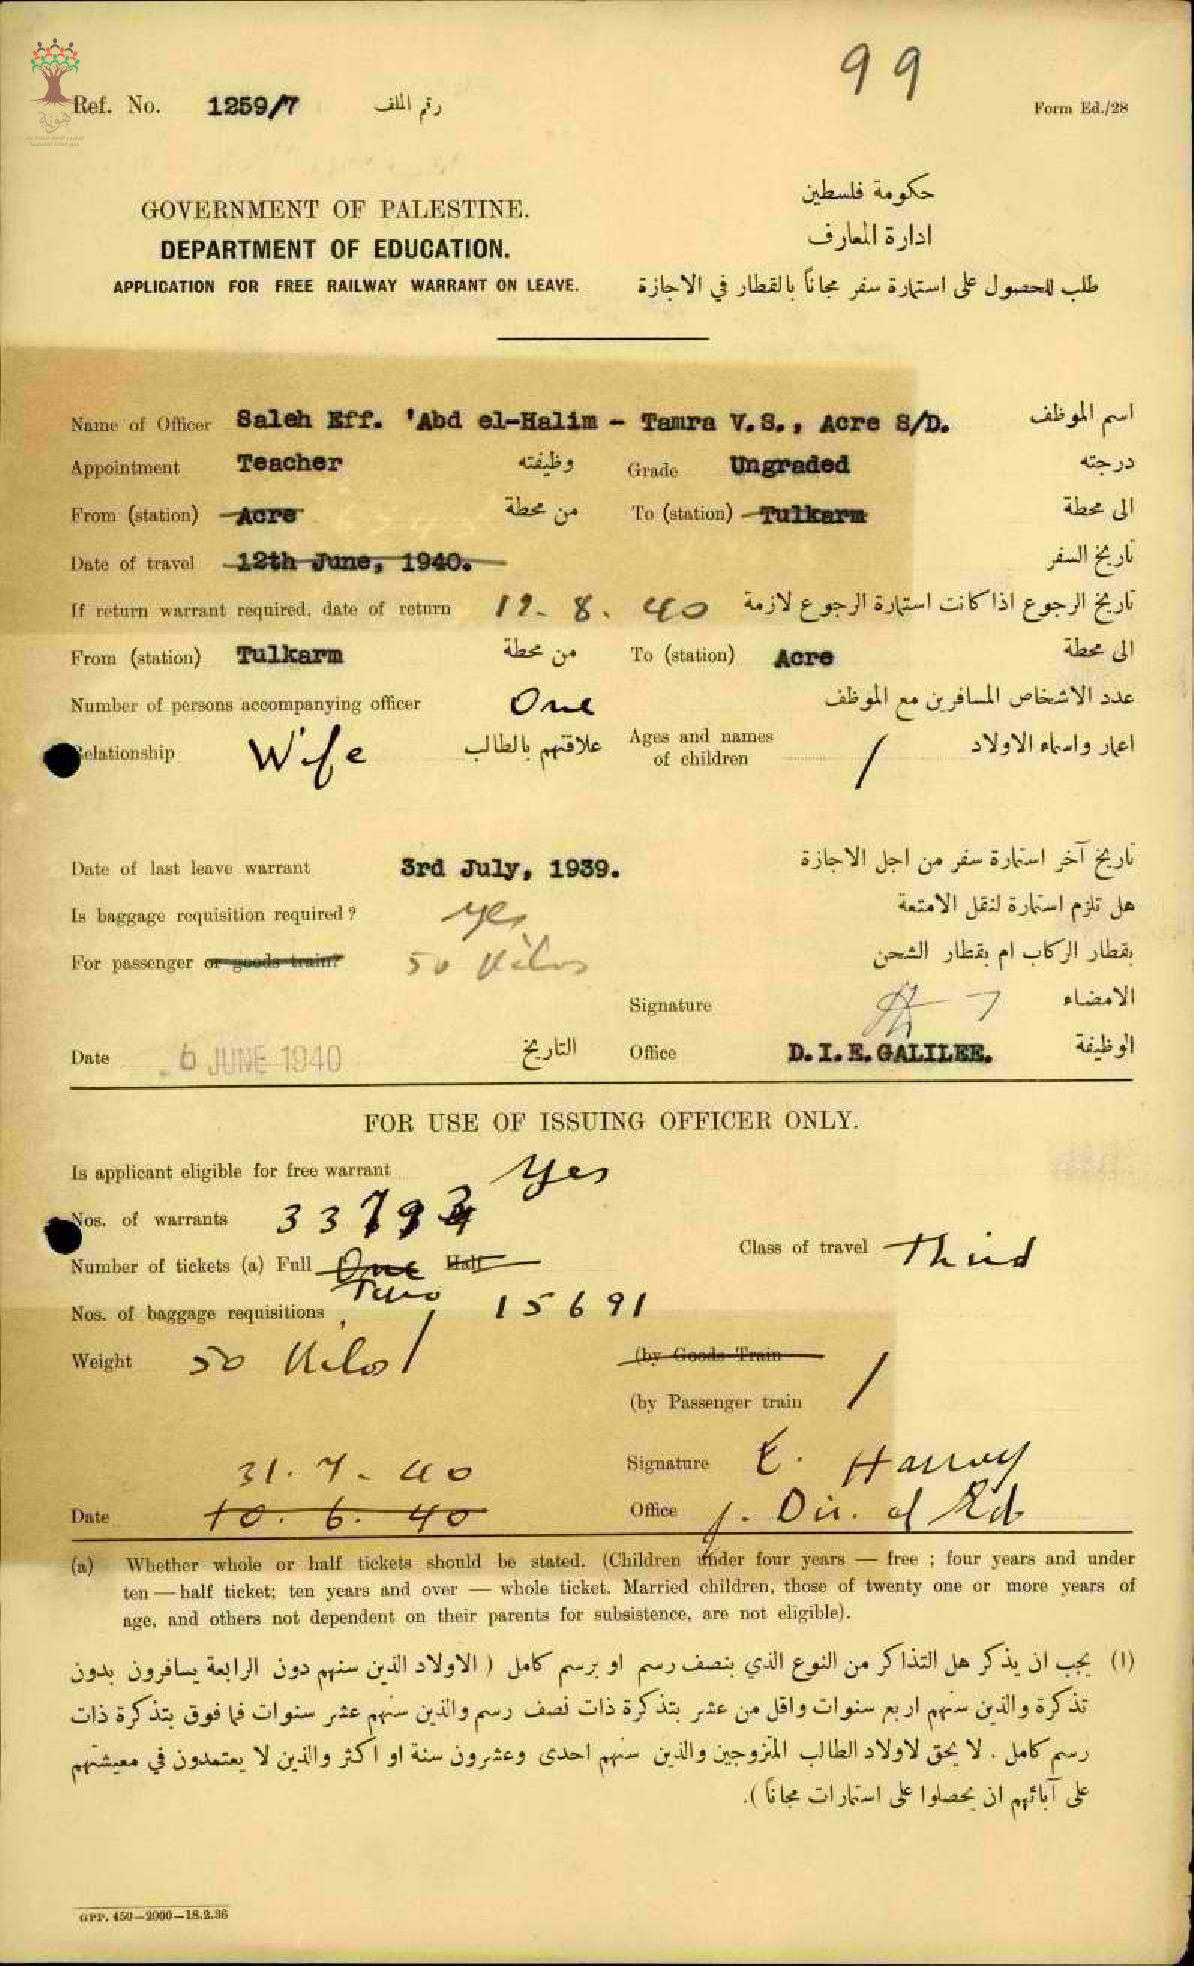 99
Ref. No. 1259/7 رقم الملف
Form Ed./28
هوية
GOVERNMENT OF PALESTINE.
DEPARTMENT OF EDUCATION.
APPLICATION FOR FREE RAILWAY WARRANT ON LEAVE.
حكومة فلسطين
ادارة المعارف
طلب للحصول على استمارة سفر مجاناً بالقطار في الاجازة
Name of Officer Saleh Eff. 'Abd el-Halim - Tamra V.S., Acre S/D. اسم الموظف
Appointment Teacher وظيفته Grade Ungraded درجته
From (station) Acre من محطة To (station) Tulkarm الى محطة
Date of travel 12th June, 1940. تاريخ السفر
If return warrant required, date of return 12. 8. 40 تاريخ الرجوع اذا كانت استمارة الرجوع لازمة
From (station) Tulkarm من محطة To (station) Acre الى محطة
Number of persons accompanying officer One عدد الاشخاص المسافرين مع الموظف
Relationship Wife علاقتهم بالطالب Ages and names of children / اعمار واسماء الاولاد
Date of last leave warrant 3rd July, 1939. تاريخ آخر استمارة سفر من اجل الاجازة
Is baggage requisition required? yes هل تلزم استمارة لنقل الامتعة
For passenger or goods train? 50 Kilos بقطار الركاب ام بقطار الشحن
Signature الامضاء
Date 6 JUNE 1940 التاريخ Office D.I.E. GALILEE. الوظيفة
FOR USE OF ISSUING OFFICER ONLY.
Is applicant eligible for free warrant yes
Nos. of warrants
Class of travel Third
Number of tickets (a) Full One Half
Two
Nos. of baggage requisitions 15691
Weight 50 Kilos / (by Goods Train
(by Passenger train /
31. 7. 40
Signature E. Harvey
Date 10. 6. 40 Office f. Dir. of Ed
(a) Whether whole or half tickets should be stated. (Children under four years — free ; four years and under
ten — half ticket; ten years and over — whole ticket. Married children, those of twenty one or more years of
age, and others not dependent on their parents for subsistence, are not eligible).
(١) يجب ان يذكر هل التذاكر من النوع الذي بنصف رسم او برسم كامل ( الاولاد الذين سنهم دون الرابعة يسافرون بدون
تذكرة والذين سنهم اربع سنوات واقل من عشر بتذكرة ذات نصف رسم والذين سنهم عشر سنوات فما فوق بتذكرة ذات
رسم كامل . لا يحق لاولاد الطالب المتزوجين والذين سنهم احدى وعشرون سنة او اكثر والذين لا يعتمدون في معيشتهم
على آبائهم ان يحصلوا على استمارات مجاناً ).
GPP. 450—2000—18.2.36